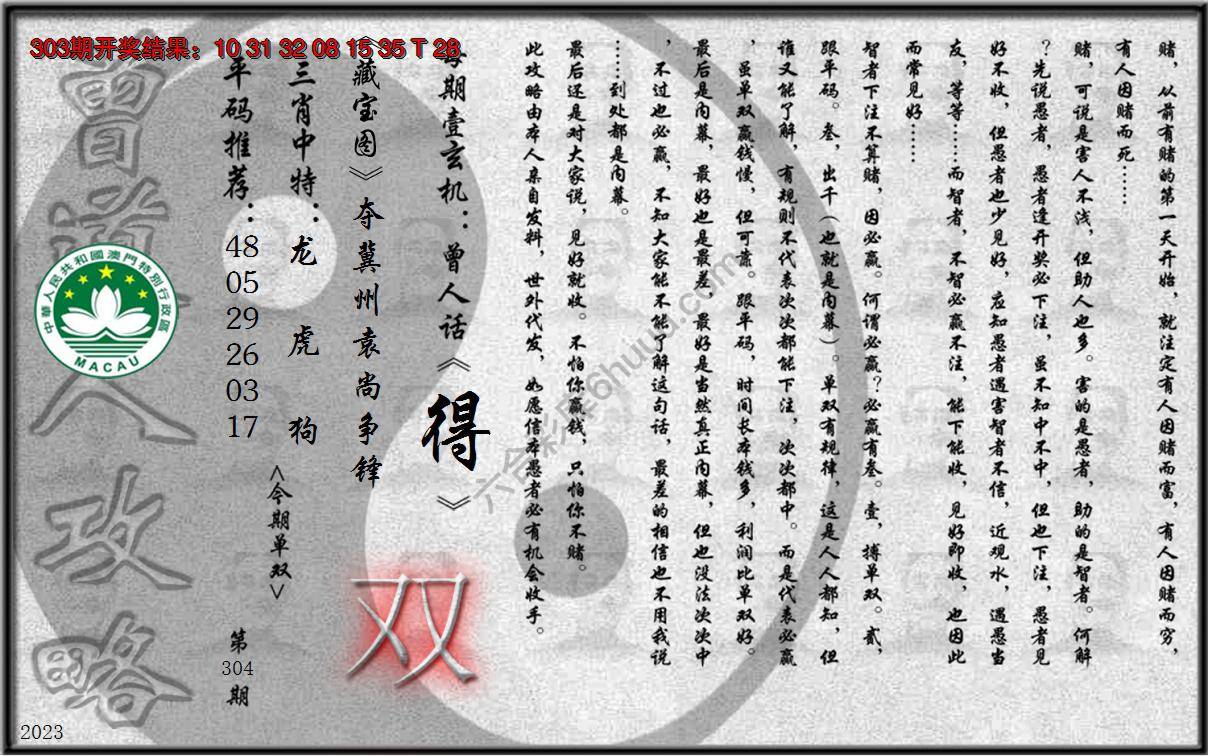 303期开奖结果：10 31 32 08 15 35 T 28
赌，从前有赌的第一天开始，就注定有人因赌而富，有人因赌而穷，
有人因赌而死……
赌，可说是害人不浅，但助人也多。害的是愚者，助的是智者。何解
？先说愚者，愚者逢开奖必下注，虽不知中不中，但也下注，愚者见
好不收，但愚者也少见好，应知愚者遇害智者不信，近观水，遇愚当
友，等等……而智者，不智必赢不注，能下能收，见好即收，也因此
而常见好……
智者下注不算赌，因必赢。何谓必赢？必赢有叁。壹，搏单双。贰，
跟平码。叁，出千（也就是内幕）。单双有规律，这是人人都知，但
谁又能了解，有规则不代表次次都能下注，次次都中。而是代表必赢
，虽单双赢钱慢，但可靠。跟平码，时间长本钱多，利润比单双好。
最后是内幕，最好也是最差，最好是当然真正内幕，但也没法次次中
，不过也必赢，不知大家能不能了解这句话，最差的相信也不用我说
……到处都是内幕。
最后还是对大家说，见好就收。不怕你赢钱，只怕你不赌。
此攻略由本人亲自发料，世外代发，如愿信本愚者必有机会收手。
每期壹玄机：曾人话《得》
《藏宝图》夺冀州袁尚争锋
三肖中特：龙 虎 狗
平码推荐：48 05 29 26 03 17
<今期单双>
双
第304期
曾道人攻略
中華人民共和國澳門特別行政區
MACAU
六合彩库6huuu.com
2023